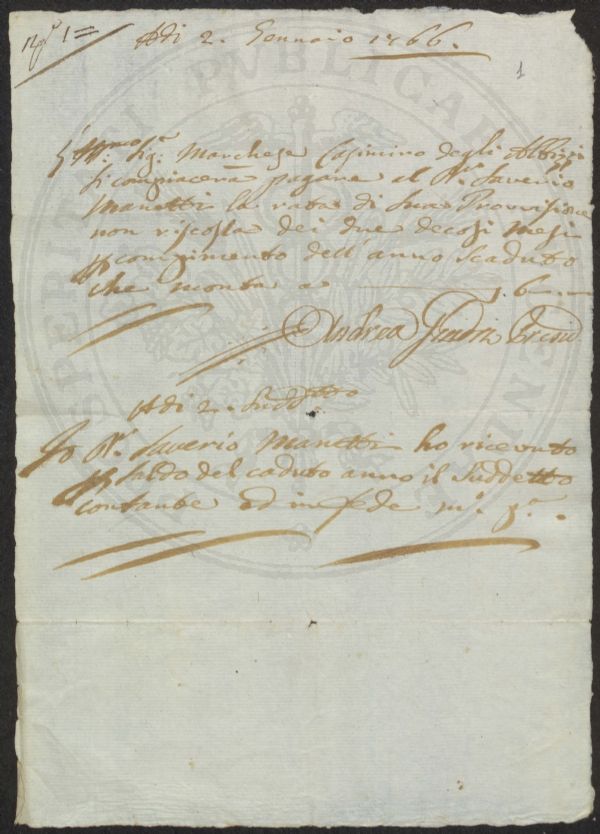 N.º 1
Adi 2. Gennaio 1766.
1
Ill.mo Sig.r Marchese Casimiro degli Albizi
si compiacerà pagare al D.r Saverio
Manetti la rata di sua Provvisione
non riscossa dei due decorsi mesi
compimento dell'anno scaduto
che monta a 6
Andrea
Adi 2. Suddetto
Io D.r Saverio Manetti ho ricevuto
saldo del caduto anno il Suddetto
contante ed in fede m.º p.ª
PROSPERITATI PUBLICAE